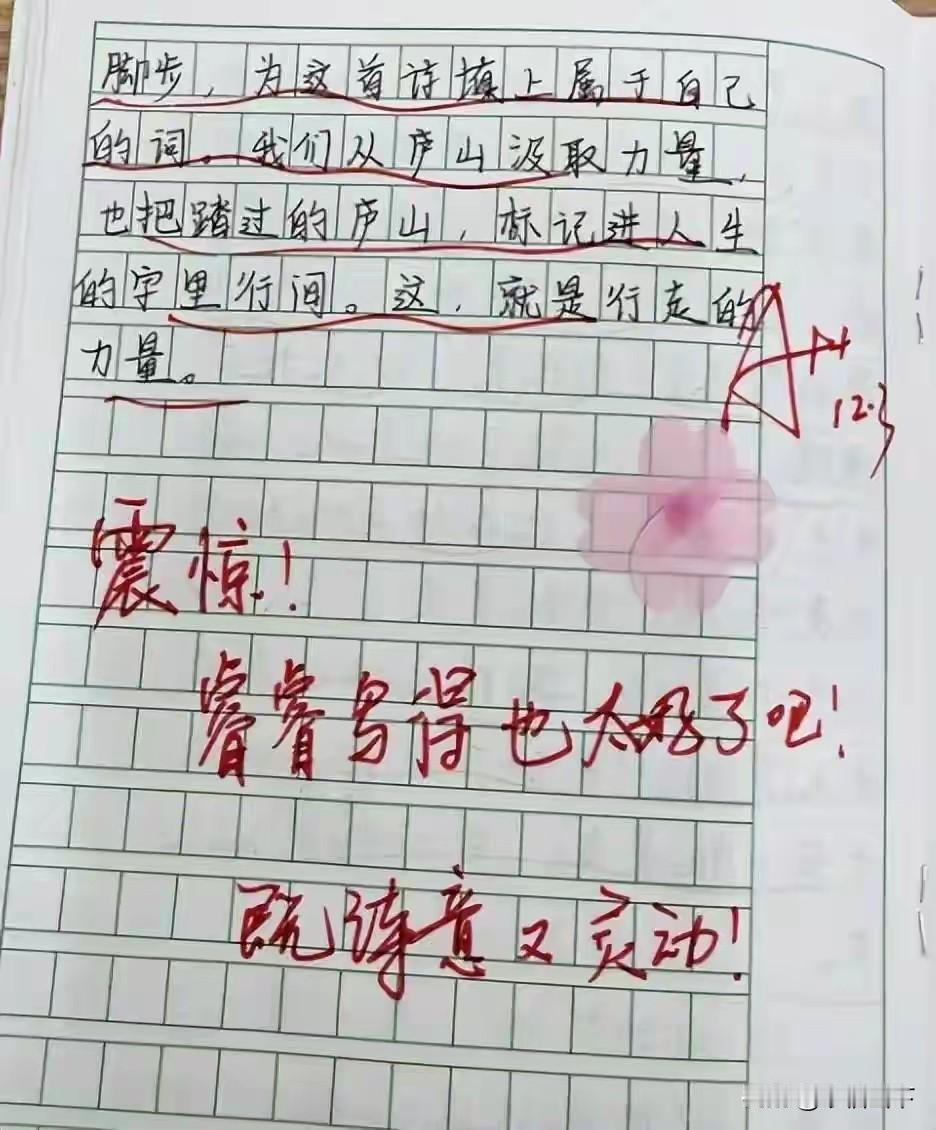 脚步，为这首诗填上属于自己
的词。我们从庐山汲取力量，
也把踏过的庐山，标记进人生
的字里行间。这，就是行走的
力量。
A++
12.3
震惊！
睿睿写得也太好了吧！
既诗意又灵动！